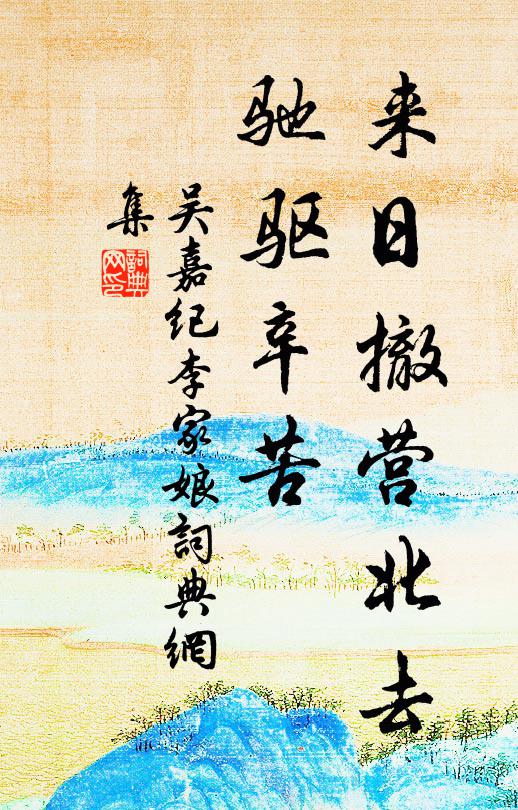 来日撤营北去
驰驱辛苦
吴嘉纪李家娘词典網
集
詞典
网印